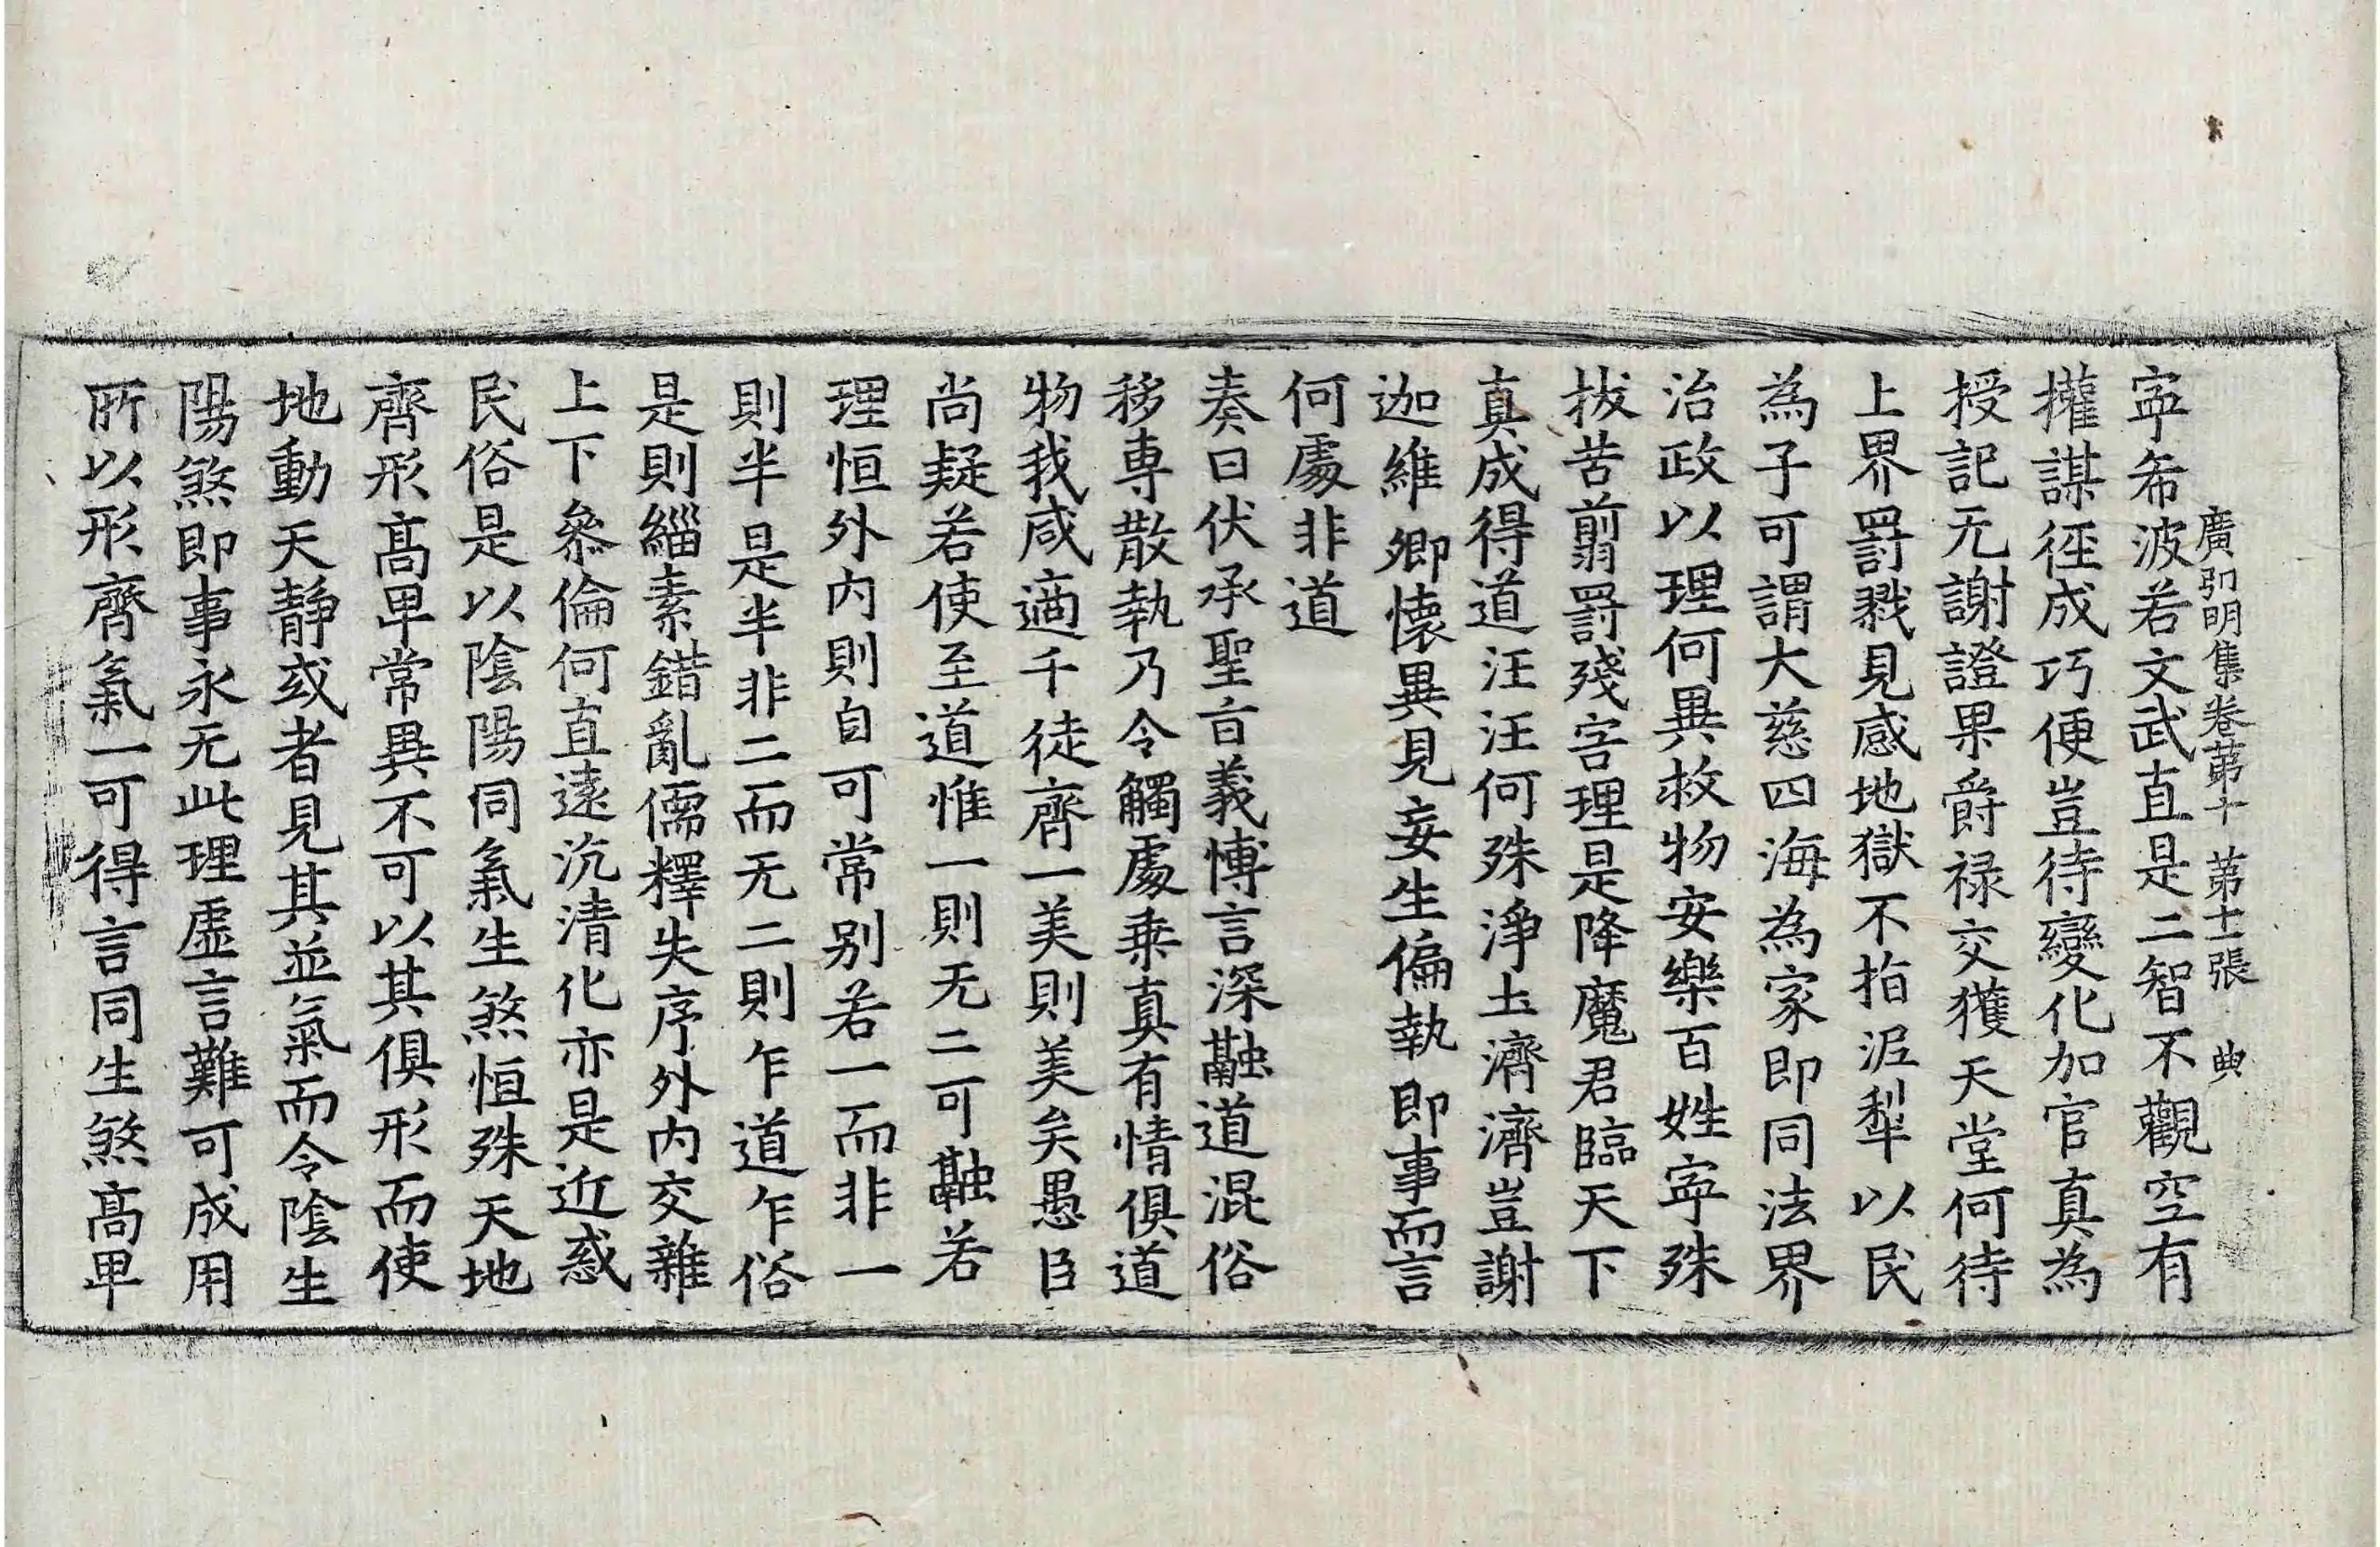 廣弘明集卷苐十　苐十二張　典
寜希波若文武直是二智不觀空有
權謀徑成巧便豈待變化加官真為
授記无謝證果爵禄交獲天堂何待
上界罸戮見感地獄不指泥犁以民
為子可謂大慈四海為家即同法界
治政以理何異救物安樂百姓寜殊
拔苦翦罸殘害理是降魔君臨天下
真成得道汪汪何殊淨土濟濟豈謝
迦維卿懷異見妄生偏執即事而言
何處非道
奏曰伏承聖旨義博言深融道混俗
移專散執乃令觸處乗真有情俱道
物我咸適千徒齊一美則美矣愚臣
尚疑若使至道惟一則无二可融若
理恒外内則自可常别若一而非一
則半是半非二而无二則乍道乍俗
是則緇素錯亂儒釋失序外内交雜
上下叅倫何直遠沉清化亦是近惑
民俗是以陰陽同氣生煞恒殊天地
齊形髙卑常異不可以其俱形而使
地動天静或者見其並氣而令陰生
陽煞即事永无此理虛言難可成用
所以形齊氣一可得言同生煞髙卑